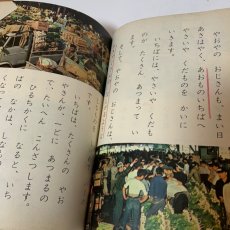 やおやの おじさんも、まい日
あさはやく、あおものいちばへ
やさいや くだものを かいに
いきます。
いちばには、やさいや くだも
のが、たくさん あつまって い
ます。
そして、やおやの おじさんが
いちばは、たくさんの やお
やさんが、一どに あつまるの
で、たいへん こんざつします。
ひるちかくに なると、いち
ばの なかは、しなもの
くなって